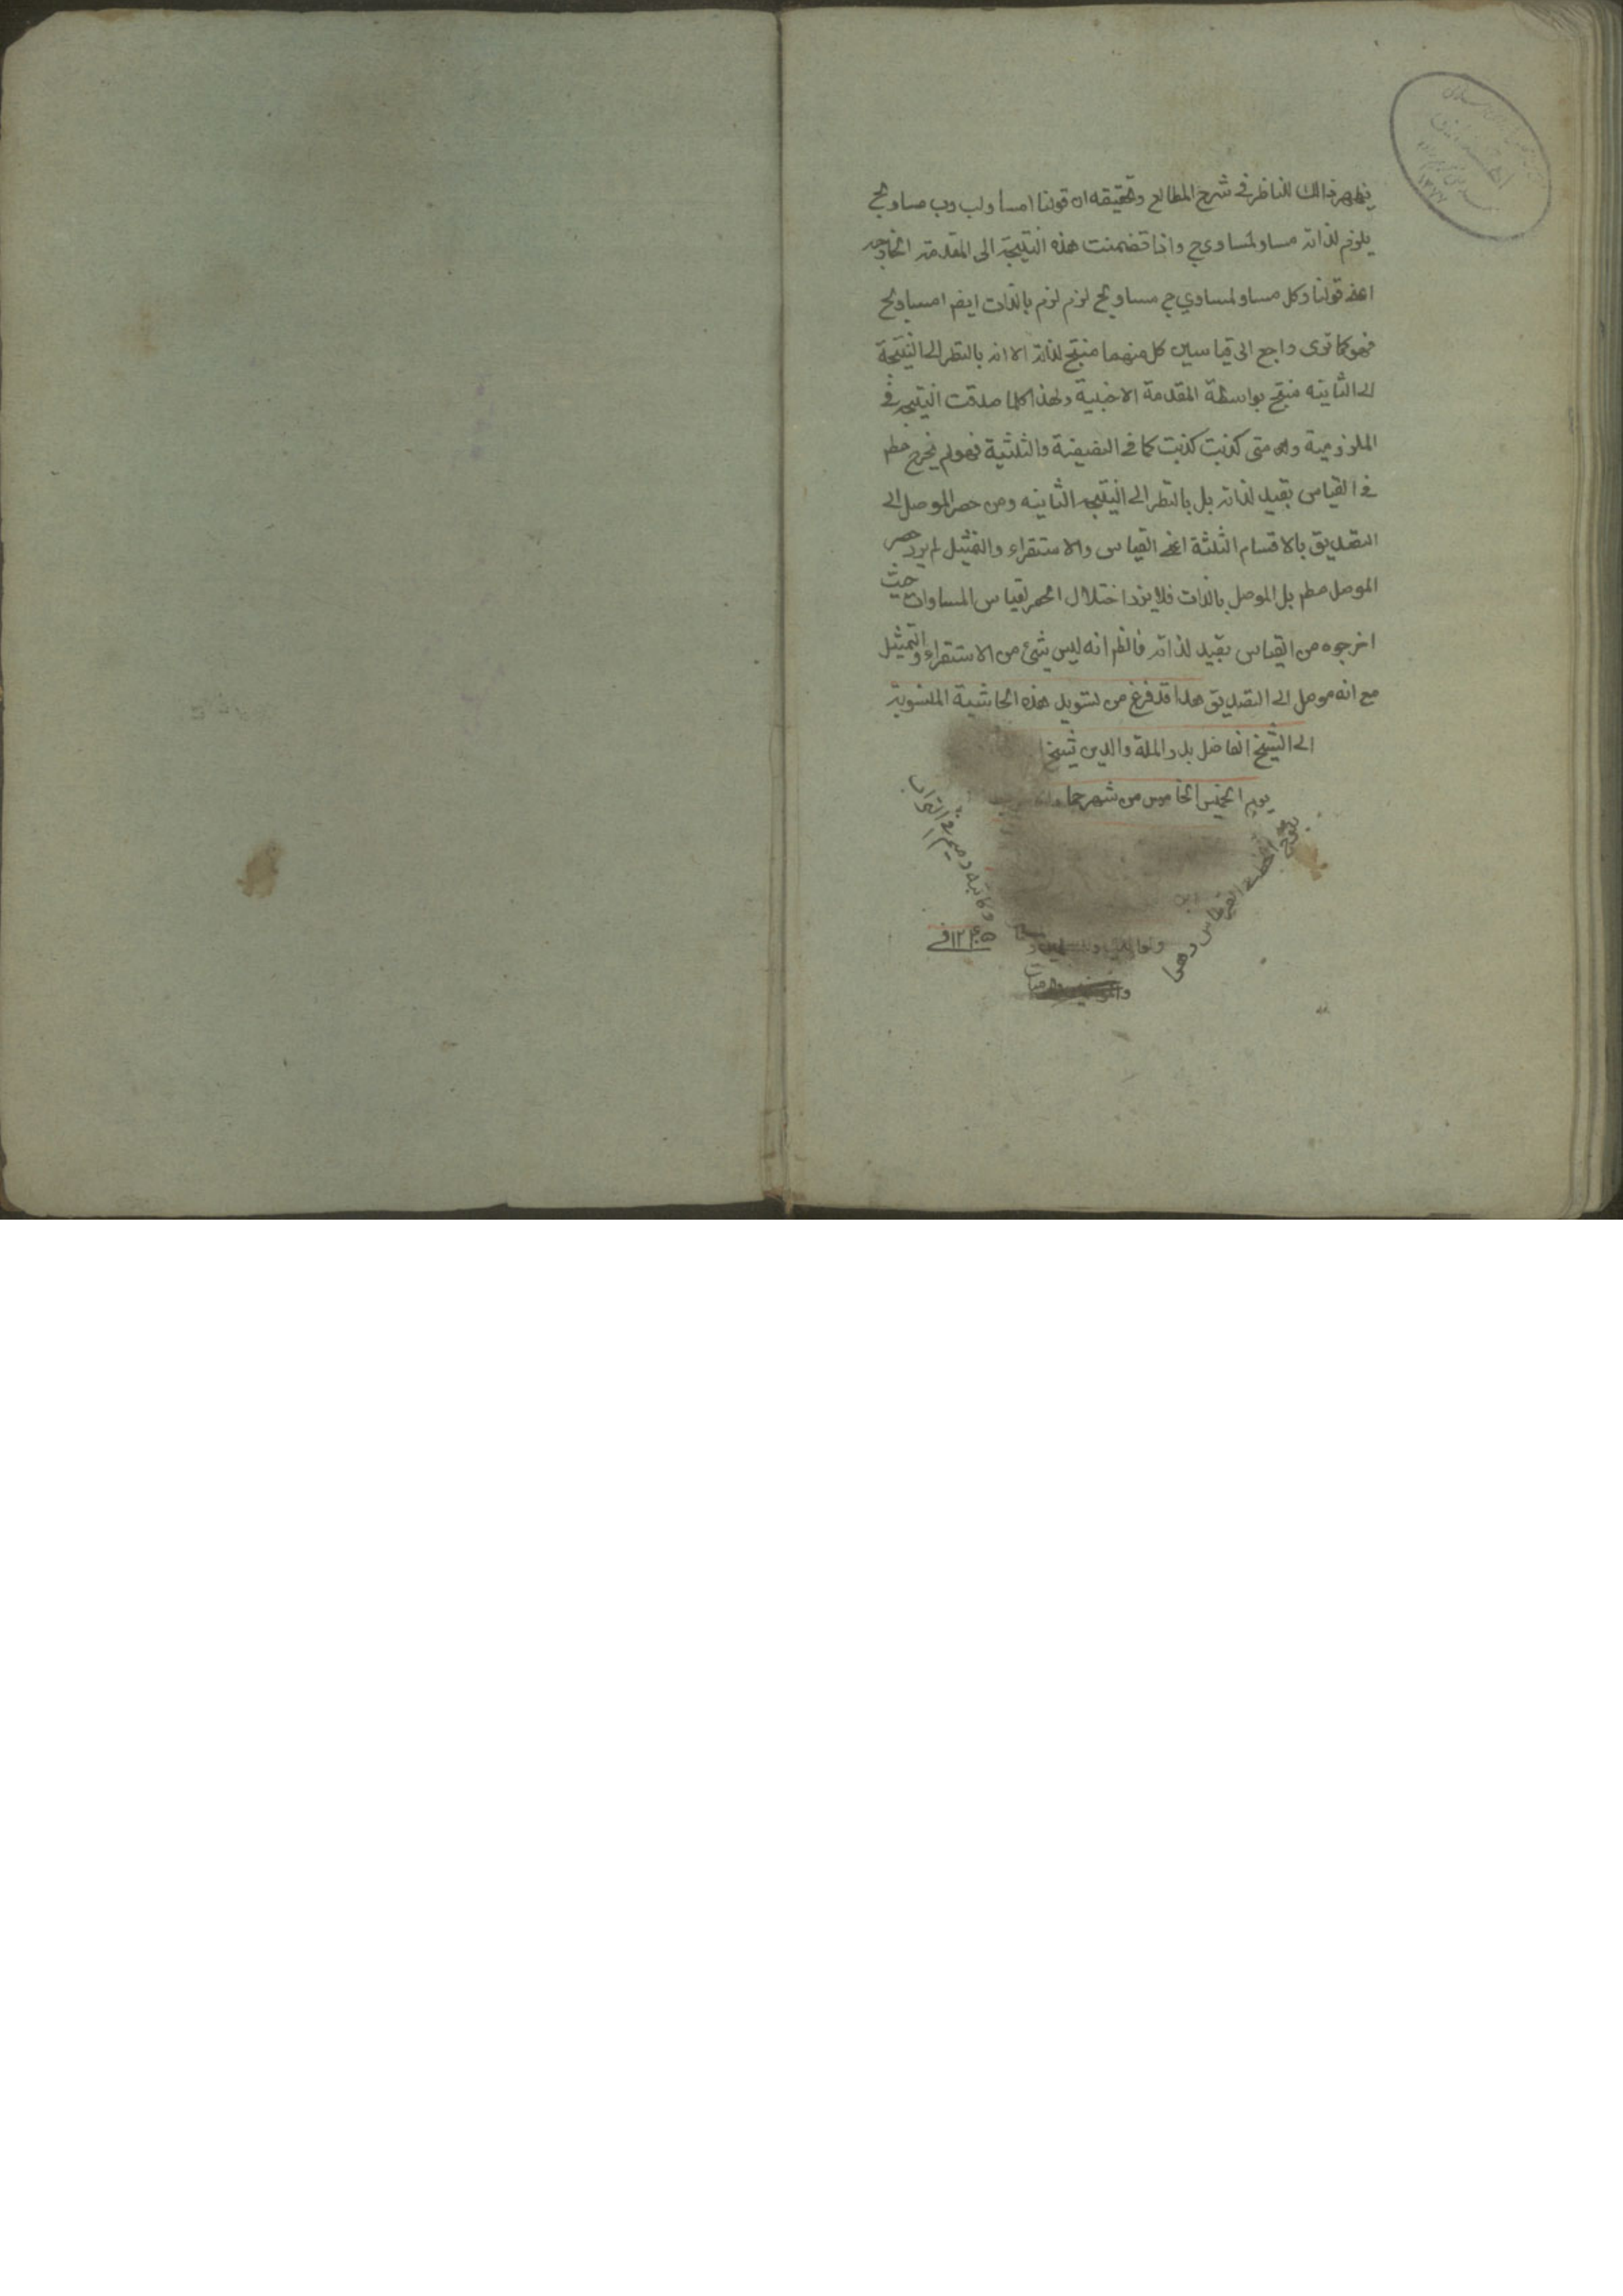 يظهر ذالك للناظر في شرح المطالع وتحقيقه ان قولنا امساو لب وب مساو لج
يلزم لذاته مساو لمساوي ج واذا تضمنت هذه النتيجة الى المقدمة الخارجه
اعني قولنا وكل مساو لمساوي ج مساو لج لزم لزم بالذات ايضا امساو لج
فهو كما ترى راجع الى قياسين كل منهما منتج لذاته الا انه بالنظر الى النتيجة
الى الثانيه منتج بواسطة المقدمة الاجنبية ولهذا كلما صدقت النتيجه في
الملزومية و متى كذبت كذبت كما في النصفية والثلثية فهو لم يخرج مطم
في القياس بقيد لذاته بل بالنظر الى النتيجه الثانيه ومن حصر الموصل الى
التصديق بالاقسام الثلثة اعني القياس والاستقراء والتمثيل لم يرد حصر
الموصل مطم بل الموصل بالذات فلا يرد اختلال الحصر لقياس المساوات حيث
اخرجوه من القياس بقيد لذاته فالظم انه ليس شئ من الاستقراء والتمثيل
مع انه موصل الى التصديق هذا قد فرغ من تسويد هذه الحاشية المنسوبة
الى الشيخ الفاضل بدر الملة والدين شيخ
يوم الخميس الخامس من شهر جما
يلوح الخط في القرطاس دهرا
وكاتبه رميم في التراب